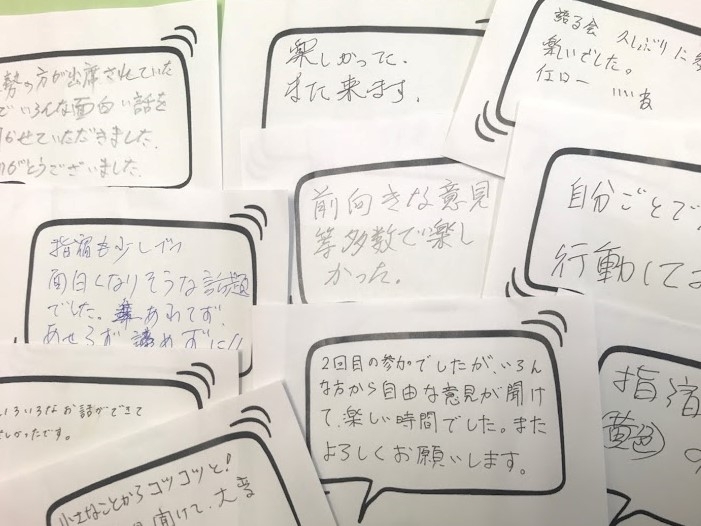 勢の方が出席されていた
でいろんな面白い話を
かせていただきました。
がとうございました。
楽しかってた、
また来ます。
語る会 久しぶりに
楽いでした。
イエロー いいね
前向きな意見
等多数で楽し
かった。
自分ごとで
行動して
指宿も少しづつ
面白くなりそうな話題
でした。あわてず、
あせらず 諦めずに!!
2回目の参加でしたが、いろん
な方から自由な意見が聞け
て、楽しい時間でした。また
よろしくお願いします。
指宿
黄色
いろいろなお話ができて
しかったです。
小さなことからコツコツと!
聞けて、大変